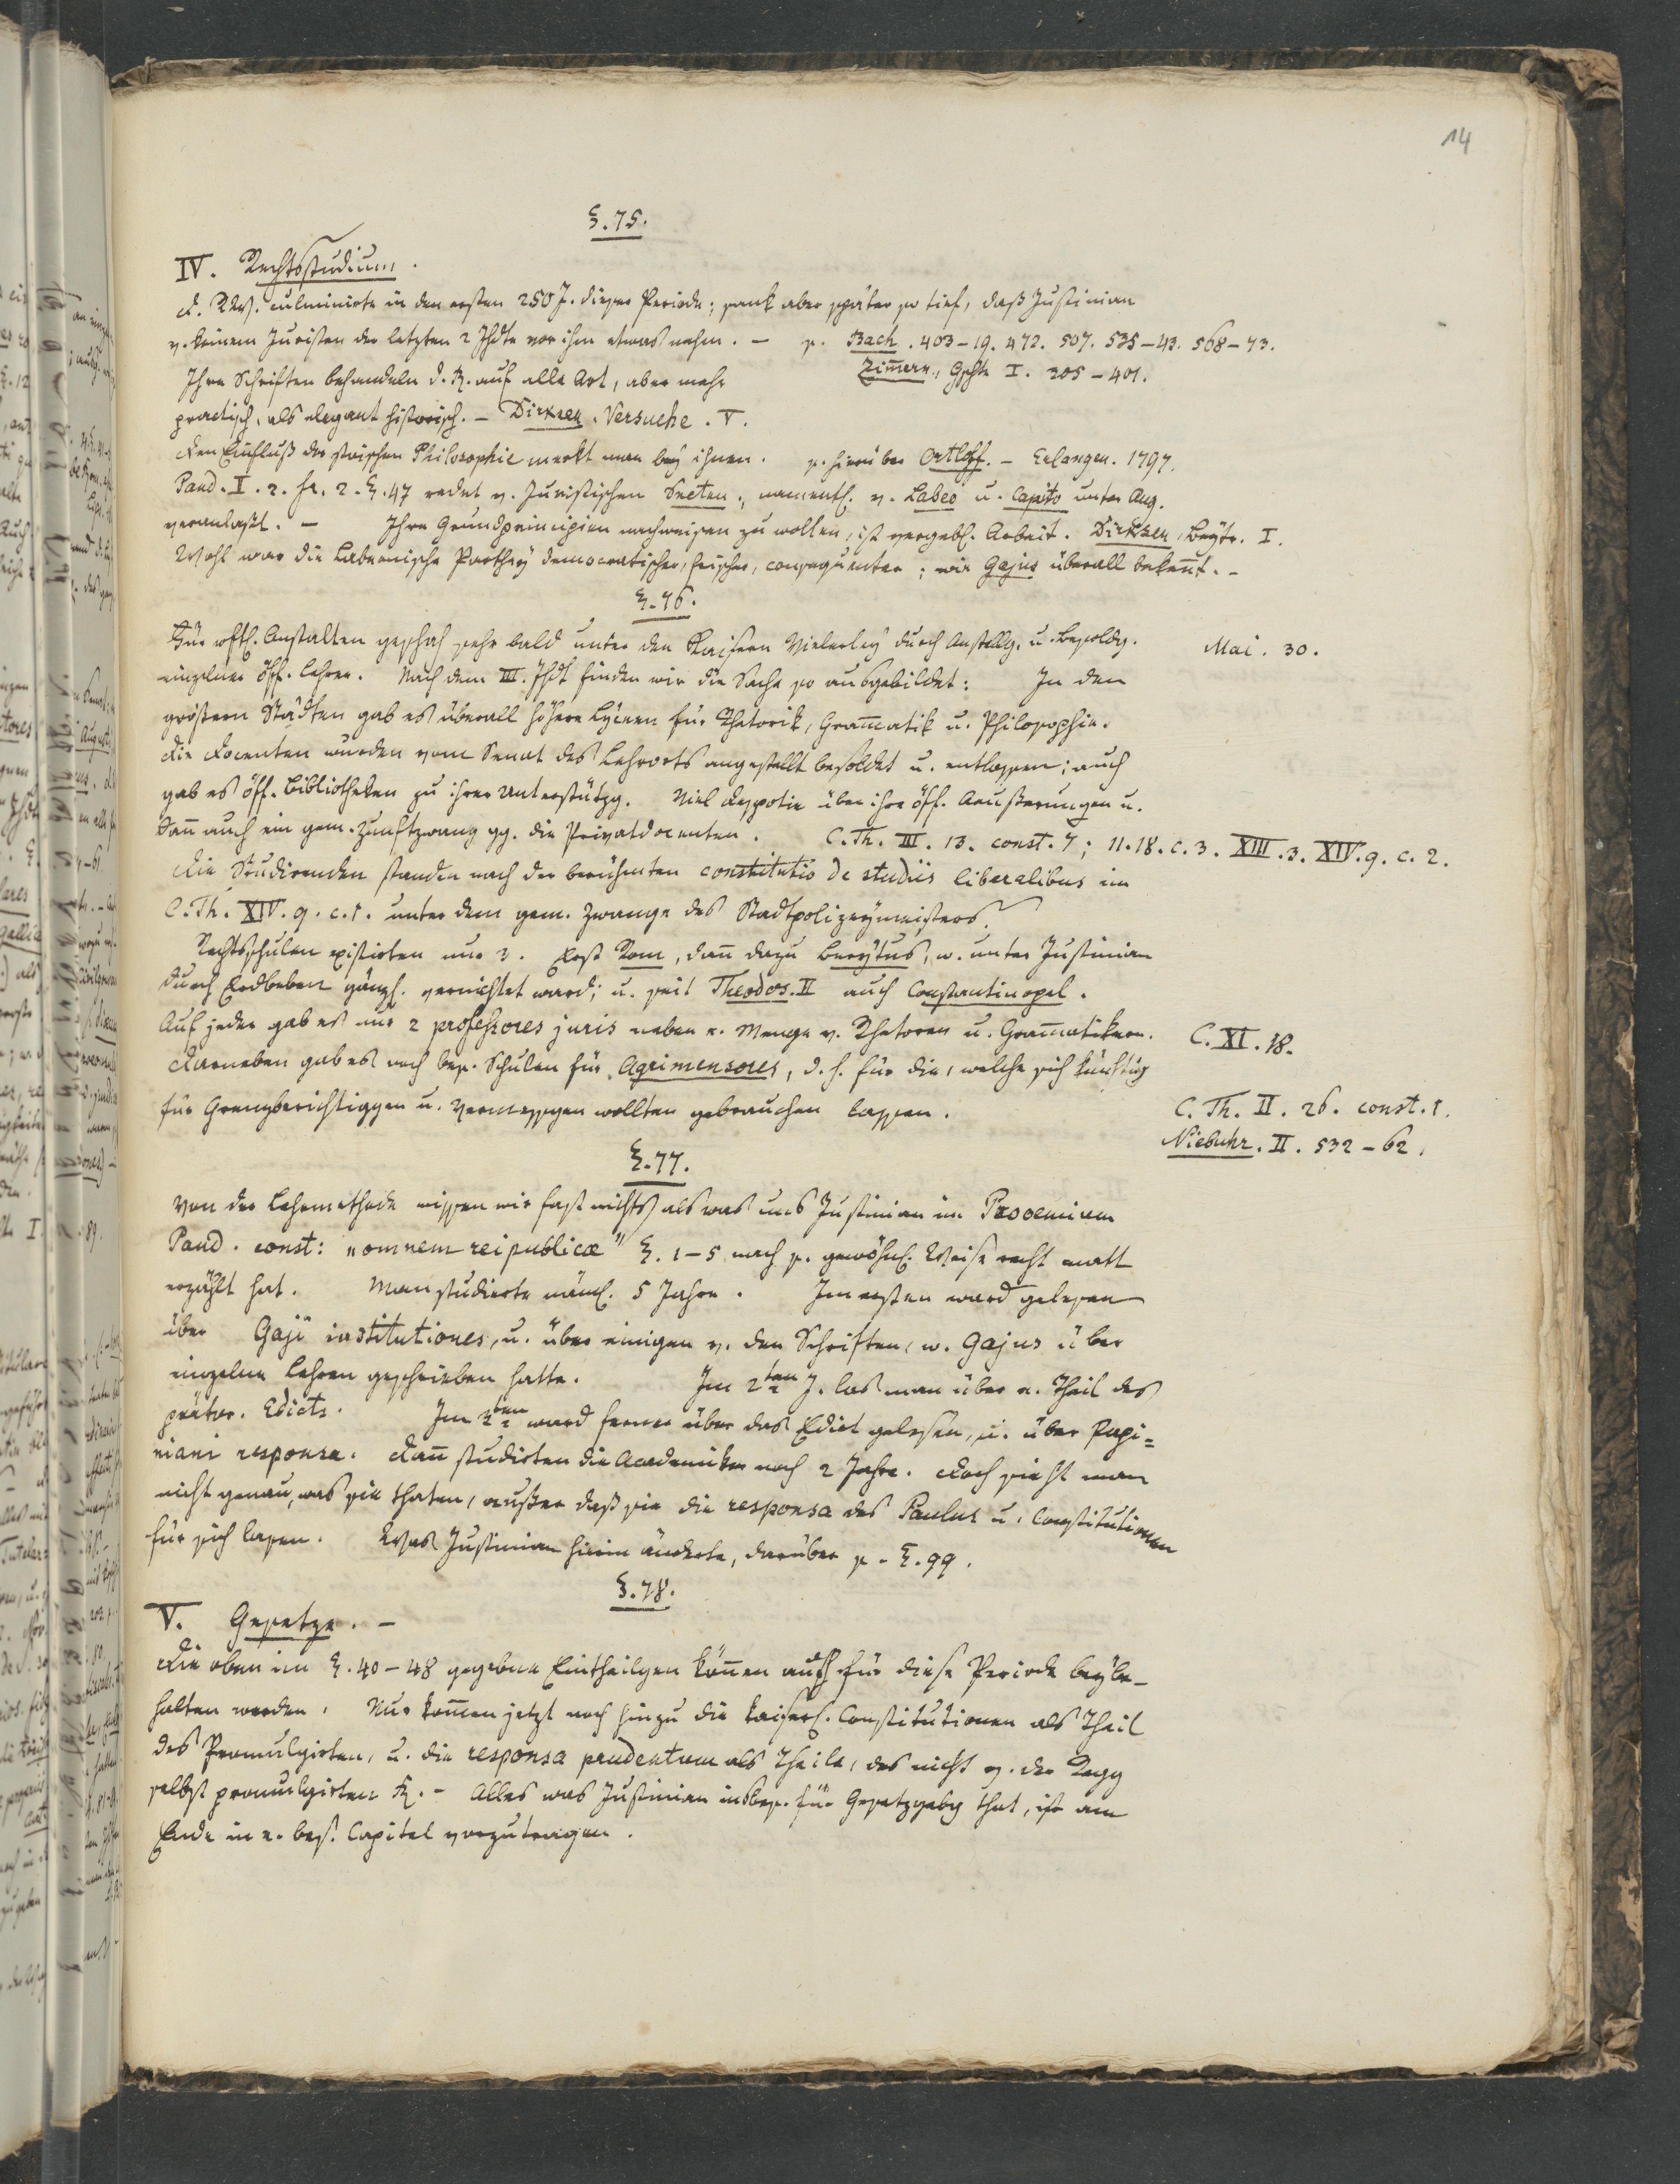 14
§.75.
IV. Rechtsstudium.
d. RWs. culminirte in den ersten 250 J. dieser Periode; sank aber später so tief, daß Justinian
v. keinem Juristen der letzten 2 Jhdte vor ihm etwas nahm. – s. Bach. 403–19. 472. 507. 535–43. 568–73.
Zim̄ern, Gschte I. 305–401.
Ihre Schriften behandeln d. R. auf alle Art, aber mehr
practisch, als elegant historisch. – Dirksen. Versuche. V.
Den Einfluß der stoischen Philosophie merkt man bey ihnen. s. hierüber Ortloff. – Erlangen. 1797.
Pand. I. 2. fr. 2. §.47 redet v. Juristischen Secten, namentl. v. Labeo u. Capito unter Aug.
veranlaßt. – Ihre Grundprincipien nachweisen zu wollen, ist vergebl. Arbeit. Dirksen, Beytr. I.
Wohl war die Labeonische Parthey democratischer, frischer, consequenter; wie Gajus überall bekent. –
§.76.
Für öfftl. Anstalten geschah sehr bald unter den Kaisern Vielerley durch Anstellg. u. Besoldg.
Mai. 30.
einzelner öff. Lehrer. Nach dem III. Jhdt finden wir die Sache so ausgebildet: In den
größern Städten gab es überall höhere Lyceen für Rhetorik, Gram̄atik u. Philosophie.
Die Docenten wurden vom Senat des Lehrorts angestellt besoldet u. entlassen; auch
gab es öff. Bibliotheken zu ihrer Unterstützg. Viel Despotie über ihre öff. Aeußerungen u.
dan̄ auch ein gem. Zunftzwang gg. die Privatdocenten. C. Th. III. 13. const. 7; 11.18. c. 3. XIII. 3. XIV. 9. c. 2.
Die Studirenden standen nach der berühmten constitutio de studiis liberalibus im
C. Th. XIV. 9. c. 1. unter dem gem. Zwange des Stadtpolizeymeisters.
Rechtsschulen existirten nur 3. Erst Rom, dan̄ dazu Berytus, w. unter Justinian
durch Erdbeben gänzl. vernichtet ward; u. seit Theodos. II auch Constantinopel.
Auf jeder gab es nur 2 professores juris neben e. Menge v. Rhetoren u. Gram̄atikern.
C. XI. 18.
Darneben gab es noch bes. Schulen für Agrimensores, d. h. für die, welche sich künftig
für Grenzberichtiggen u. Vermessgen wollten gebrauchen lassen.
C. Th. II. 26. const. 1.
Niebuhr. II. 532–62.
§.77.
Von der Lehrmethode wissen wir fast nichts, als was uns Justinian im Prooemium
Pand. const: „omnem reipublicæ" §. 1–5 nach s. gewöhnl. Weise recht matt
erzählt hat. Man studierte näml. 5 Jahre. Im ersten ward gelesen
über Gaji institutiones, u. über einigen v. den Schriften, w. Gajus über
einzelne Lehren geschrieben hatte. Im 2ten J. las man über e. Theil des
prätor. Edicts. Im ten ward ferner über das Edict gelesen, u. über Papi=
niani responsa. Dan̄ studirten die Academiker noch 2 Jahre. Doch sieht man
nicht genau, was sie thaten, außer daß sie die responsa des Paulus u. Constitutionen
für sich lasen. Was Justinian hierin änderte, darüber s. §.99.
§.78.
V. Gesetze. –
Die oben im §.40–48 gegebne Eintheilgen kön̄en auch für diese Periode beybe–
halten werden. Nur kom̄en jetzt noch hinzu die kaiserl. Constitutionen als Theil
des Promulgirten, u. die responsa prudentum als Theile, des nicht v. der Regg
selbst promulgirten R. – Alles was Justinian insbes. für Gesetzgebg that, ist am
Ende in e. bes. Capitel vorzutragen.